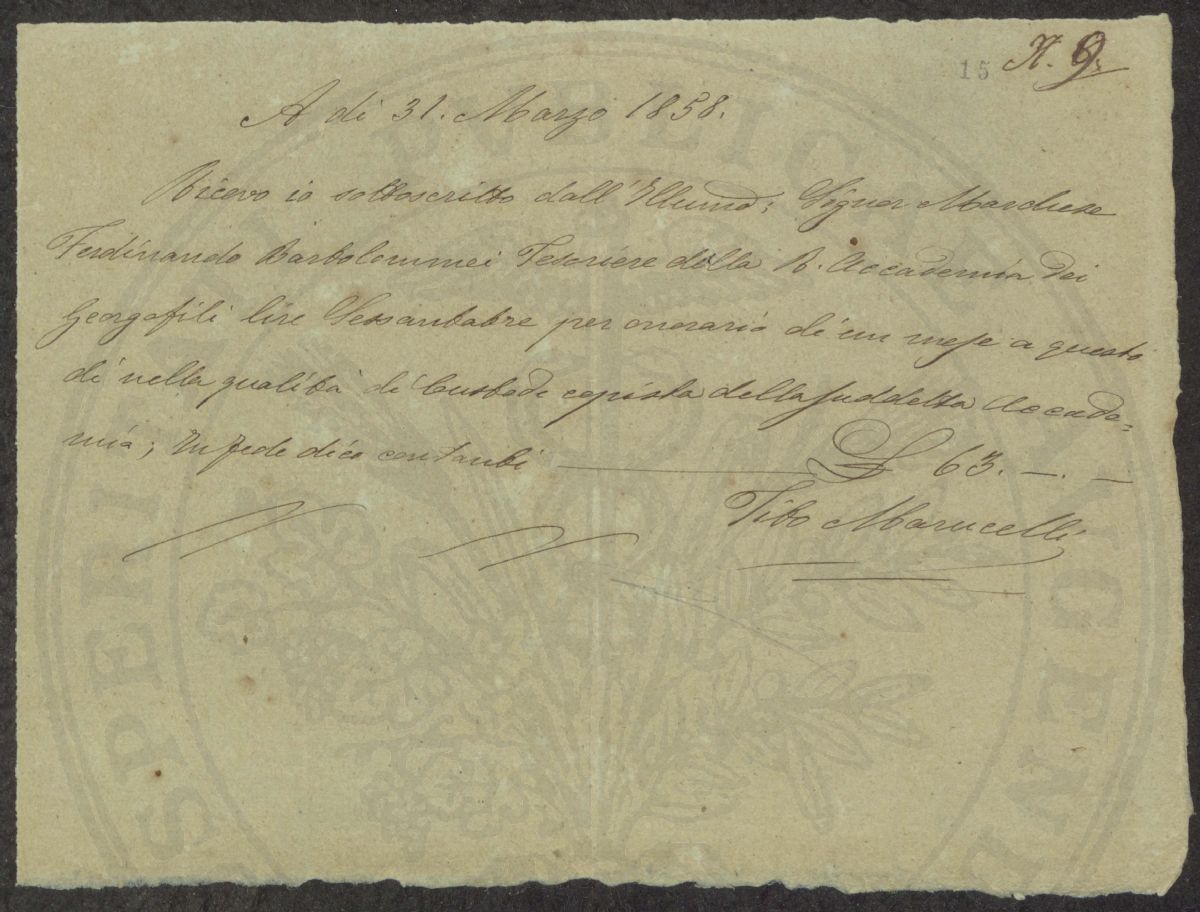 15 N. 9.
A di 31. Marzo 1858.
Ricevo io sottoscritto dall' Illumo; Signor Marchese
Ferdinando Bartolommei Tesoriere della R. Accademia dei
Georgofili lire Sessantatre per onorario di un mese a questo
dì nella qualità di Custode copista della suddetta Accade=
mia; In fede dico contanti L 63. —. —
Tito Marucelli